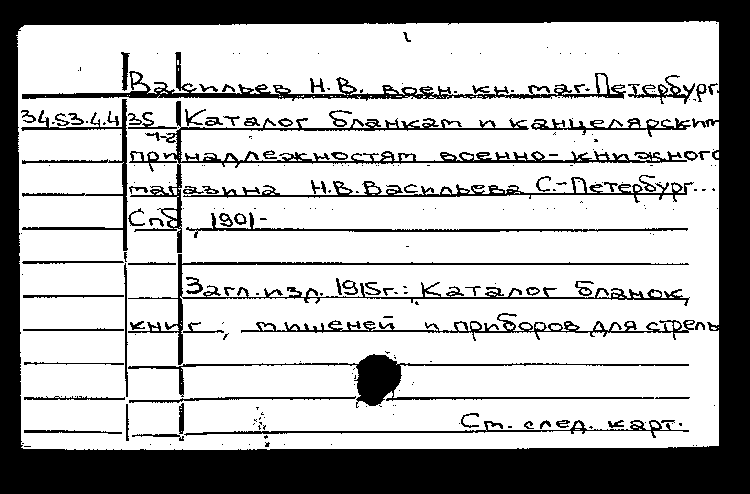 Васильев, Н.В. воен. кн. маг. Петербург.
34.53.4.4 35 Каталог бланкам и канцелярским
1-2
принадлежностям военно-книжного
магазина Н.В. Васильева, С.-Петербург...
Спб, 1901-
Загл. изд. 1915г.: Каталог бланок,
книг, мишеней и приборов для стрель
См. след. карт.